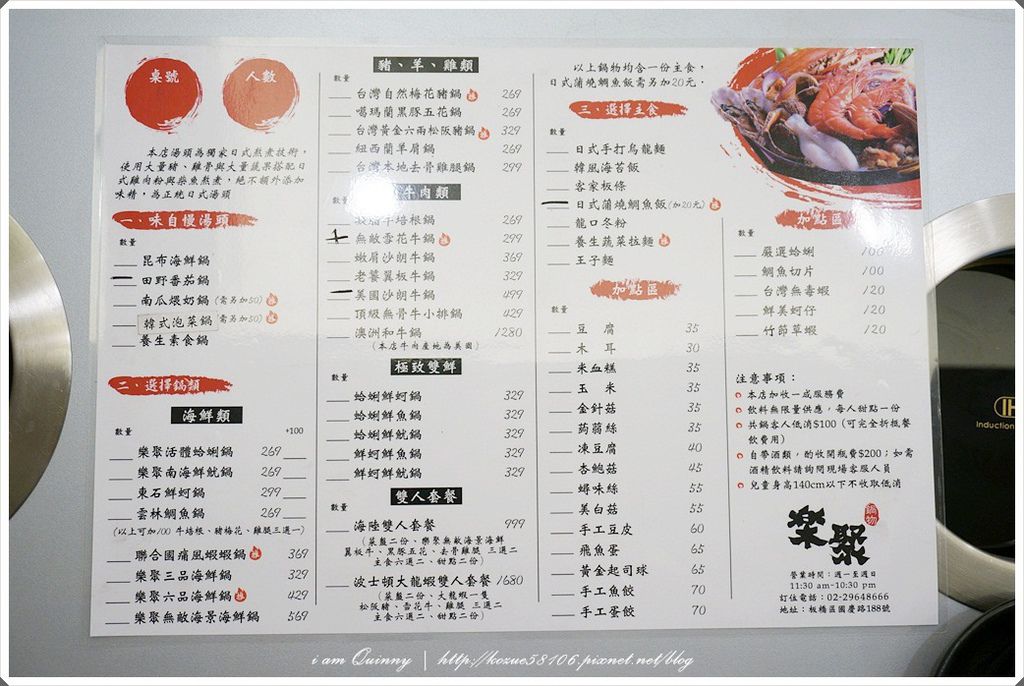 桌號
人數
本店湯頭為獨家日式熬煮技術，
使用大量豬、雞骨與大量蔬果搭配日
式雞肉粉與柴魚熬煮，絕不額外添加
味精，為正統日式湯頭
一、味自慢湯頭
數量
昆布海鮮鍋
田野番茄鍋
南瓜煨奶鍋 (需另加50)
韓式泡菜鍋 (需另加50)
養生素食鍋
二、選擇鍋類
海鮮類
數量 +100
樂聚活體蛤蜊鍋 269
樂聚南海鮮魷鍋 269
東石鮮蚵鍋 299
雲林鯛魚鍋 269
(以上可加100 牛培根、豬梅花、雞腿 三選一)
聯合國痛風蝦蝦鍋 369
樂聚三品海鮮鍋 329
樂聚六品海鮮鍋 429
樂聚無敵海景海鮮鍋 569
豬、羊、雞類
數量
台灣自然梅花豬鍋 269
噶瑪蘭黑豚五花鍋 269
台灣黃金六兩松阪豬鍋 329
紐西蘭羊肩鍋 269
台灣本地去骨雞腿鍋 269
牛肉類
數量
牛培根鍋 269
無敵雪花牛鍋 299
嫩肩沙朗牛鍋 369
老饕翼板牛鍋 329
美國沙朗牛鍋 499
頂級無骨牛小排鍋 429
澳洲和牛鍋 1280
(本店牛肉產地為美國)
極致雙鮮
數量
蛤蜊鮮蚵鍋 329
蛤蜊鮮魚鍋 329
蛤蜊鮮魷鍋 329
鮮蚵鮮魚鍋 329
鮮蚵鮮魷鍋 329
雙人套餐
數量
海陸雙人套餐 999
(菜盤二份、樂聚無敵海景海鮮
翼板牛、黑豚五花、去骨雞腿 三選二
主食六選二、甜點二份)
波士頓大龍蝦雙人套餐 1680
(菜盤二份、大龍蝦一隻
松阪豬、雪花牛、雞腿 三選二
主食六選二、甜點二份)
以上鍋物均含一份主食，
日式蒲燒鯛魚飯需另加20元．
三、選擇主食
數量
日式手打烏龍麵
韓風海苔飯
客家板條
日式蒲燒鯛魚飯(加20元)
龍口冬粉
養生蔬菜拉麵
王子麵
加點區
數量
豆 腐 35
木 耳 30
米血糕 35
玉 米 35
金針菇 35
蒟蒻絲 35
凍豆腐 40
杏鮑菇 45
蟳味絲 55
美白菇 55
手工豆皮 60
飛魚蛋 65
黃金起司球 65
手工魚餃 70
手工蛋餃 70
加點區
數量
嚴選蛤蜊 100
鯛魚切片 100
台灣無毒蝦 120
鮮美蚵仔 120
竹節草蝦 120
注意事項：
本店加收一成服務費
飲料無限量供應，每人甜點一份
共鍋客人低消$100 (可完全折抵餐
飲費用)
自帶酒類，酌收開瓶費$200；如需
酒精飲料請詢問現場客服人員
兒童身高140cm以下不收取低消
樂聚
鍋物
營業時間：週一至週日
11:30 am-10:30 pm
訂位電話：02-29648666
地址：板橋區國慶路188號
IH
Induction
i am Quinny | http://kozue58106.pixnet.net/blog